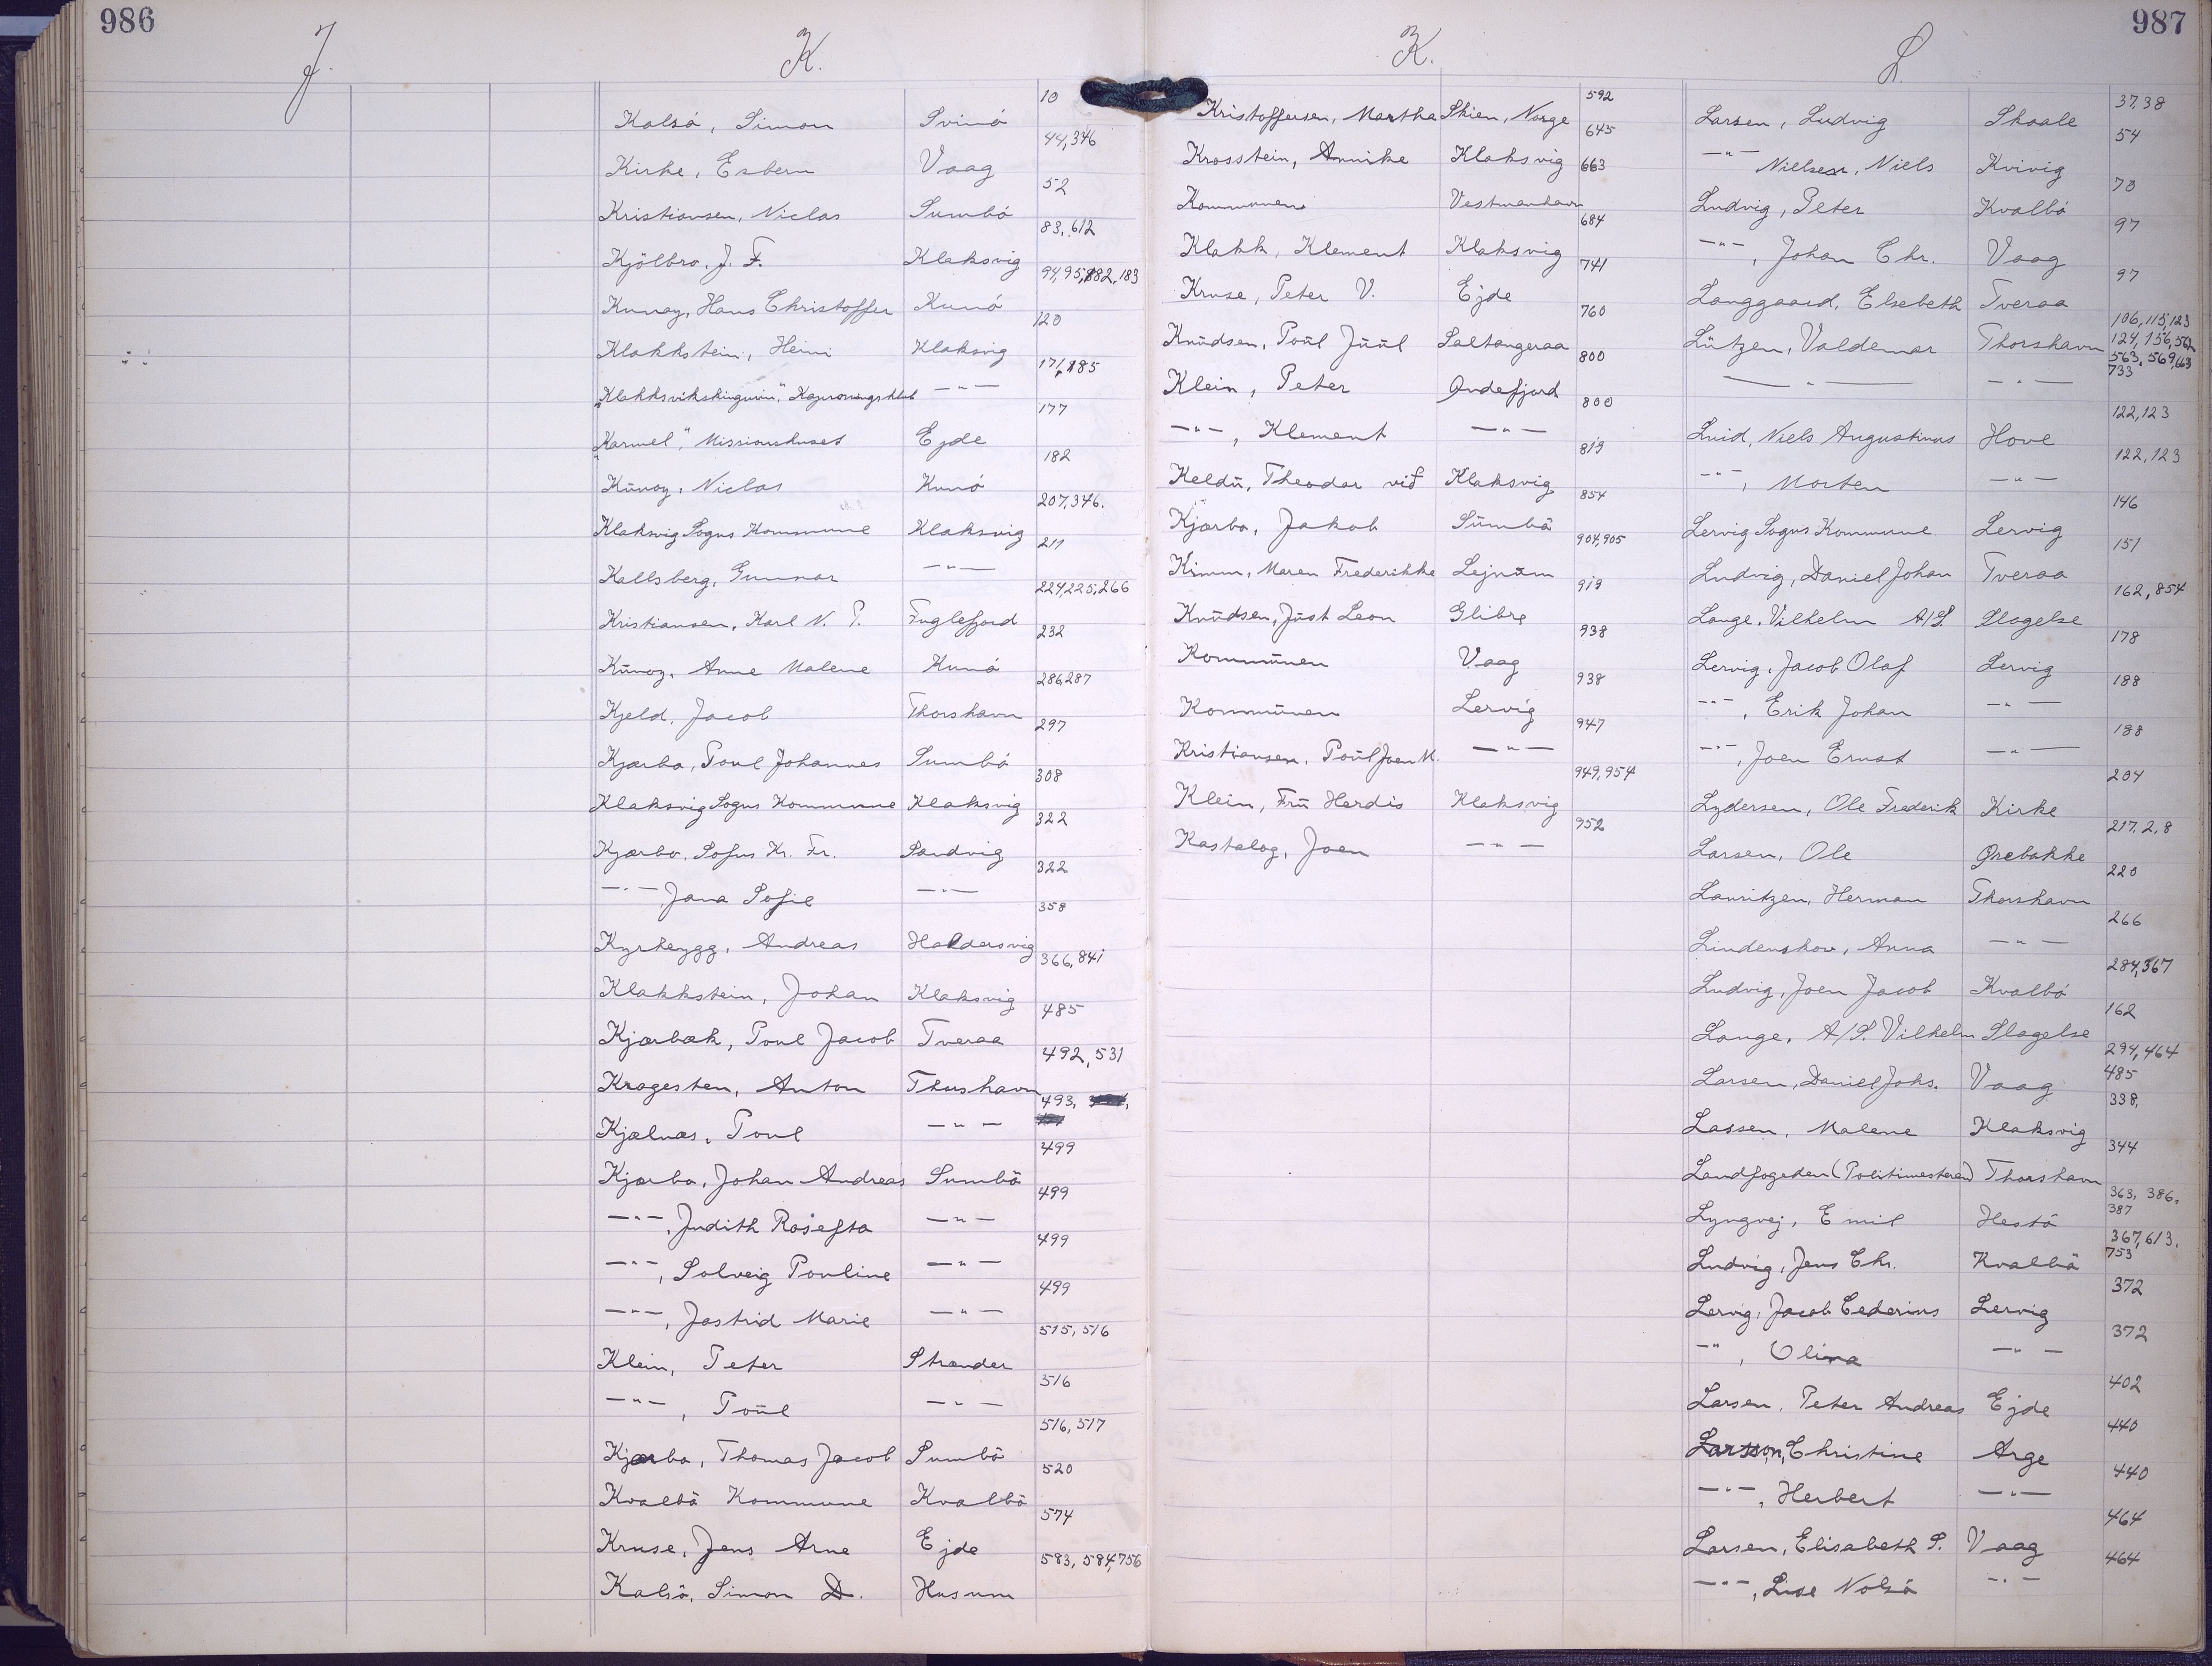 986
J.
K.
Kalsó, Simon Svinó 10
Kirke, Esbern Vaag 44,346
Kristiansen, Niclas Sumbó 52
Kjölbro, J. F. Klaksvig 83, 612
Kunoy, Hans Christoffer Kunó 94,95,182,183
Klakkstein, Heini Klaksvig 120
"Klakksvikskingurin," Kaproningsklub —"— 171,185
"Karmel", Missionshuset Ejde 177
Kūnoy, Niclas Kunó 182
Klaksvig Sogns Kommune Klaksvig 207,346.
Kallsberg, Gunnar —"— 211
Kristiansen, Karl N. P. Fuglefjord 224,225,266
Kūnoy, Anne Malene Kunó 232
Kjeld, Jacob Thorshavn 286,287
Kjærbo, Poul Johannes Sumbó 297
Klaksvig Sogns Kommune Klaksvig 308
Kjærbo, Sofus Kr. Fr. Sandvig 322
—"—, Jana Sofie —"— 322
Kyrheygg, Andreas Haldersvig 358
Klakkstein, Johan Klaksvig 366,841
Kjærbæk, Poul Jacob Tveraa 485
Kragesten, Anton Thorshavn 492,531
Kjælnæs, Poul —"— 493,
Kjærbo, Johan Andreas Sumbö 499
—"—, Judith Rosefta —"— 499
—"—, Solveig Pouline —"— 499
—"—, Jastrid Marie —"— 499
Klein, Peter Strænder 515,516
—"—, Poūl —"— 516
Kjærbo, Thomas Jacob Sumbö 516,517
Kvalbö Kommune Kvalbö 520
Kruse, Jens Arne Ejde 574
Kalsö, Simon D. Husum 583, 584,756
987
K.
L.
Kristoffersen, Martha Skien, Norge 592
Krosstein, Annike Klaksvig 645
Kommunen Vestmanhavn 663
Klakk, Klement Klaksvig 684
Kruse, Peter V. Ejde 741
Knūdsen, Poūl Jūūl Saltangeraa 760
Klein, Peter Qndefjord 800
—"—, Klement —"— 800
Keldū, Theodor við Klaksvig 819
Kjærbo, Jakob Sūmbö 854
Kimm, Maren Frederikke Lejnūm 904,905
Knūdsen, Jūst Leon Glibre 919
Kommūnen Vaag 938
Kommūnen Lervig 938
Kristiansen, Poūl Joen M. —"— 947
Klein, Frū Herdis Klaksvig 949,954
Kastalag, Joen —"— 952
Larsen, Ludvig Skaale 37,38
—"— Nielsen, Niels Kvivig 54
Ludvig, Peter Kvalbó 70
—"—, Johan Chr. Vaag 97
Langgaard, Elsebeth Tveraa 97
Lützen, Valdemar Thorshavn 106,115,123
124,156,562
563,569,663
— " — —"— 733
Luid, Niels Augustinus Hove 122,123
—"—, Morten —"— 122,123
Lervig Sogns Kommune Lervig 146
Ludvig, Daniel Johan Tveraa 151
Lange, Vilhelm A/S Slagelse 162,854
Lervig, Jacob Olaf Lervig 178
—"—, Erik Johan —"— 188
—"—, Joen Ernst —"— 188
Lydersen, Ole Frederik Kirke 204
Larsen, Ole Qrebakke 217.2,8
Lauritzen, Herman Thorshavn 220
Lindenskov, Anna —"— 266
Ludvig, Joen Jacob Kvalbó 284,367
Lange, A/S. Vilhelm Slagelse 162
Larsen, Daniel Johs. Vaag 294,464
485
Lassen, Malene Klaksvig 338,
Landfogeden (Politimesteren) Thorshavn 344
Lyngvej, Emil Hestö 363, 386,
387
Ludvig, Jens Chr. Kvalbö 367,613,
753
Lervig, Jacob Cederius Lervig 372
—"—, Olina —"— 372
Larsen, Peter Andreas Ejde 402
Larsson, Christine Arge 440
—"—, Herbert —"— 440
Larsen, Elisabeth S. Vaag 464
—"—, Lise Nolsó —"— 464